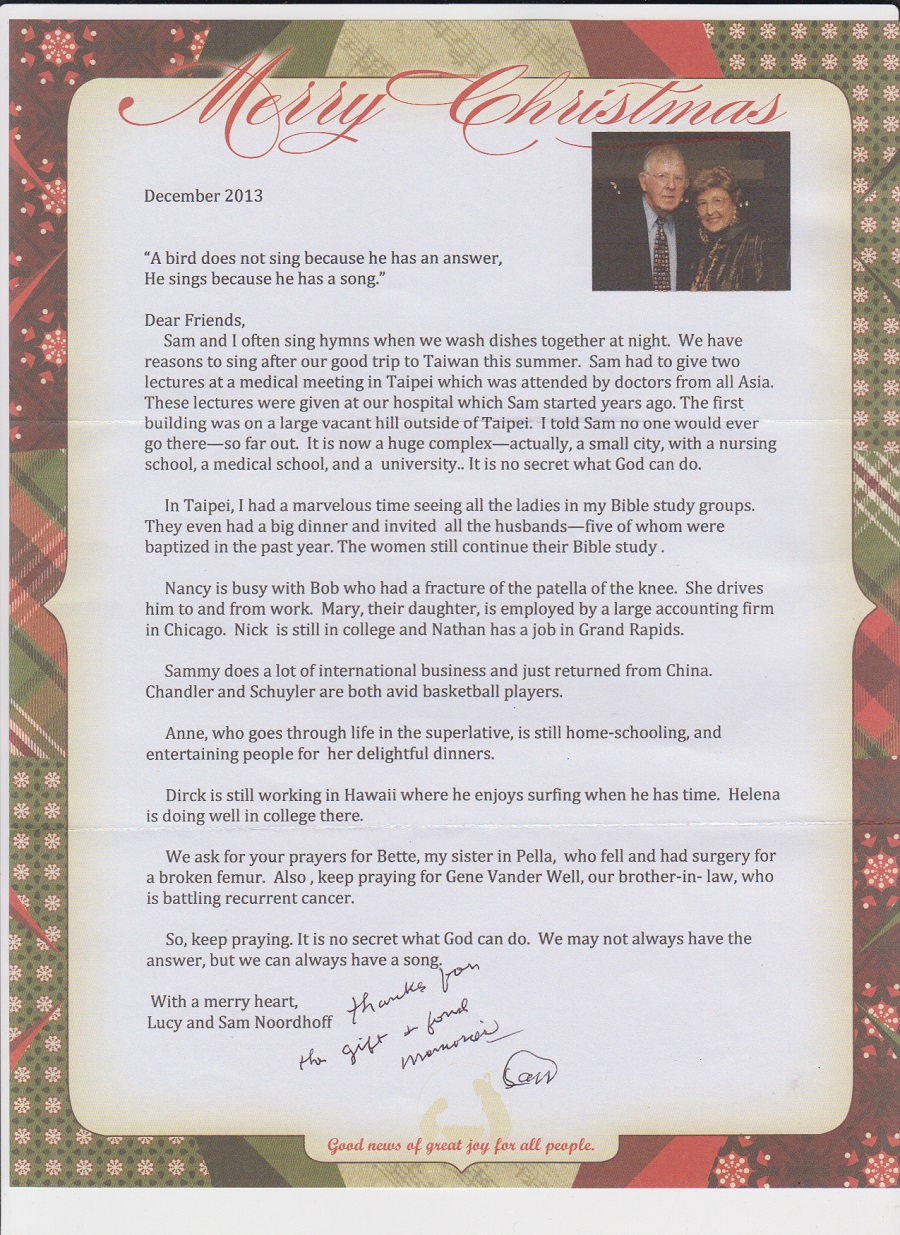 Merry Christmas
December 2013
“A bird does not sing because he has an answer,
He sings because he has a song.”
Dear Friends,
Sam and I often sing hymns when we wash dishes together at night. We have
reasons to sing after our good trip to Taiwan this summer. Sam had to give two
lectures at a medical meeting in Taipei which was attended by doctors from all Asia.
These lectures were given at our hospital which Sam started years ago. The first
building was on a large vacant hill outside of Taipei. I told Sam no one would ever
go there—so far out. It is now a huge complex—actually, a small city, with a nursing
school, a medical school, and a university.. It is no secret what God can do.
In Taipei, I had a marvelous time seeing all the ladies in my Bible study groups.
They even had a big dinner and invited all the husbands—five of whom were
baptized in the past year. The women still continue their Bible study .
Nancy is busy with Bob who had a fracture of the patella of the knee. She drives
him to and from work. Mary, their daughter, is employed by a large accounting firm
in Chicago. Nick is still in college and Nathan has a job in Grand Rapids.
Sammy does a lot of international business and just returned from China.
Chandler and Schuyler are both avid basketball players.
Anne, who goes through life in the superlative, is still home-schooling, and
entertaining people for her delightful dinners.
Dirck is still working in Hawaii where he enjoys surfing when he has time. Helena
is doing well in college there.
We ask for your prayers for Bette, my sister in Pella, who fell and had surgery for
a broken femur. Also , keep praying for Gene Vander Well, our brother-in- law, who
is battling recurrent cancer.
So, keep praying. It is no secret what God can do. We may not always have the
answer, but we can always have a song.
With a merry heart,
Lucy and Sam Noordhoff
thanks for
the gift & fond
memories
Sam
Good news of great joy for all people.